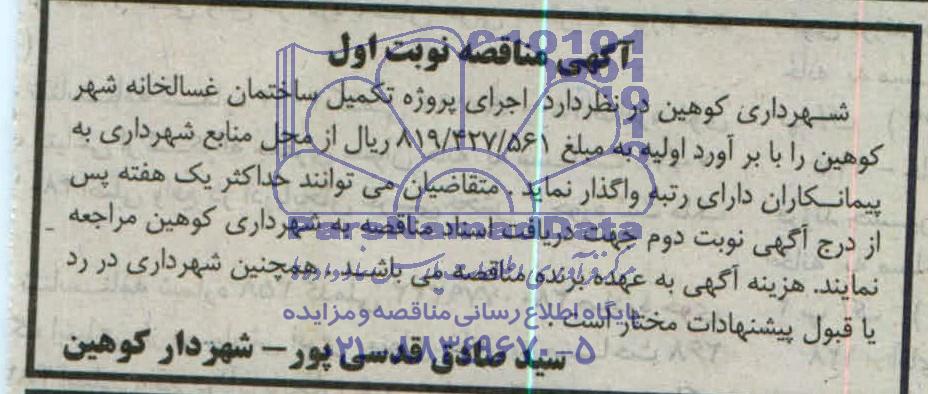 آگهی مناقصه نوبت اول
شهرداری کوهین در نظردارد اجرای پروژه تکمیل ساختمان غسالخانه شهر
کوهین را با بر آورد اولیه به مبلغ ۸۱۹/۴۲۷/۵۶۱ ریال از محل منابع شهرداری به
پیمانکاران دارای رتبه واگذار نماید . متقاضیان می توانند حداکثر یک هفته پس
از درج آگهی نوبت دوم جهت دریافت اسناد مناقصه به شهرداری کوهین مراجعه
نمایند. هزینه آگهی به عهده برنده مناقصه می باشد . همچنین شهرداری در رد
یا قبول پیشنهادات مختار است .
سید صادق قدسی پور – شهردار کوهین
ParsNamadData
پایگاه اطلاع رسانی مناقصه و مزایده
۰۲۱-۸۸۳۴۹۶۷۰-۵